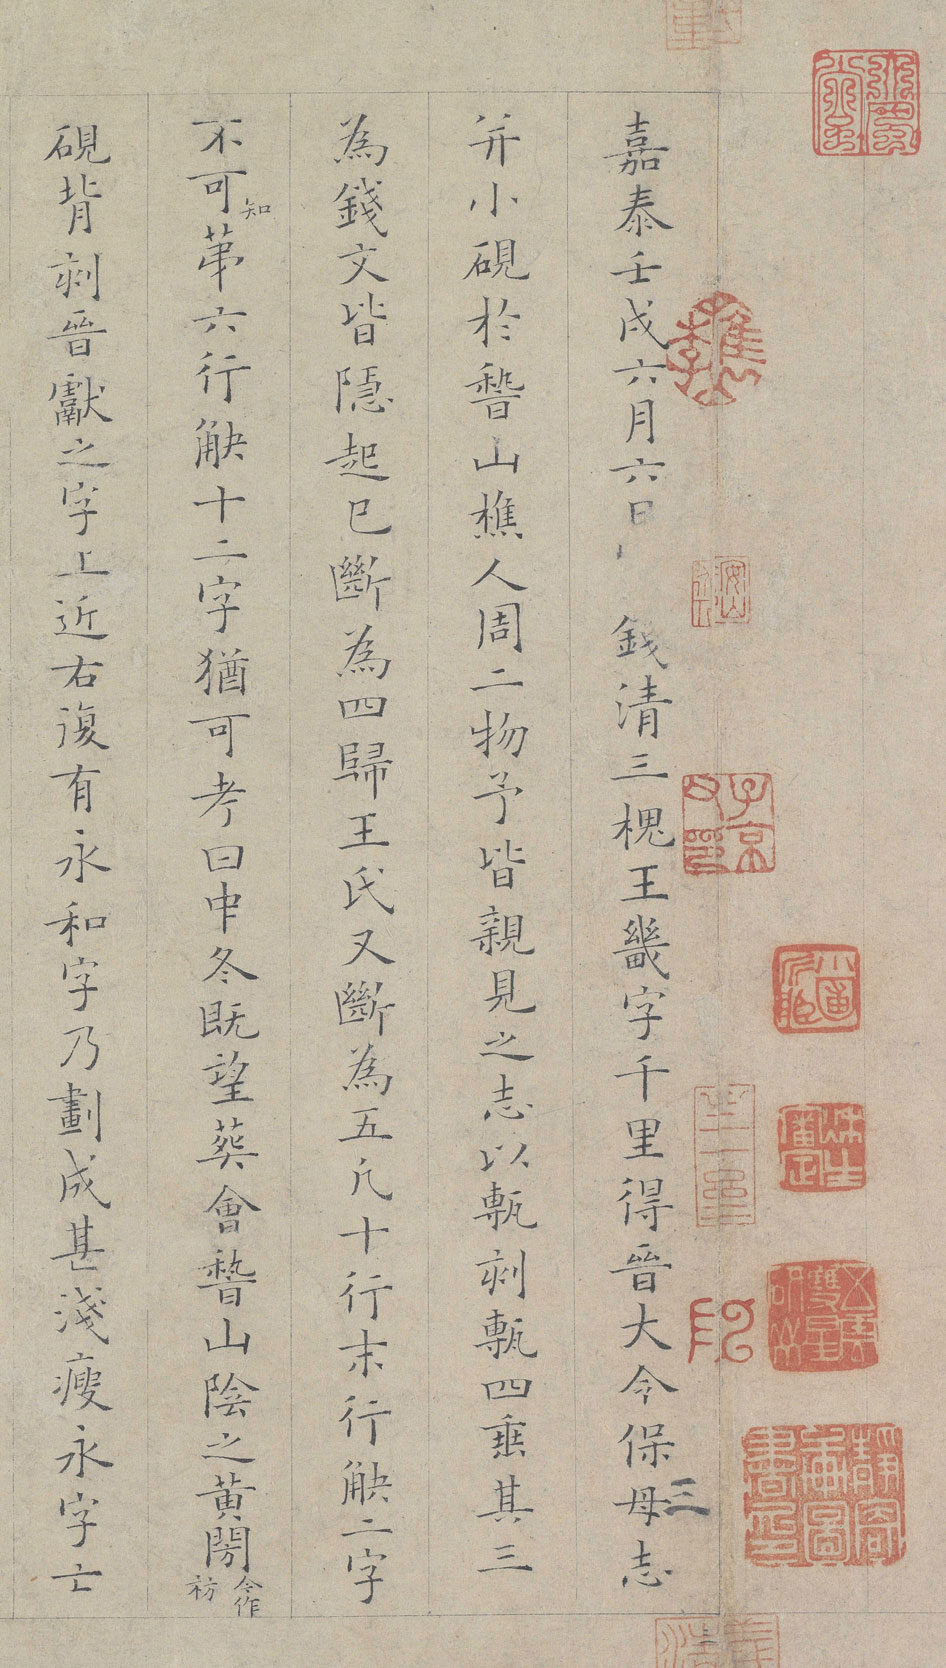 嘉泰壬戌六月六日錢清三槐王畿字千里得晉大令保母志
三
并小硯於稽山樵人周二物予皆親見之志以甎刻甎四垂其三
為錢文皆隱起已斷為四歸王氏又斷為五凡十行末行觖二字
不可知苐六行觖十二字猶可考曰中冬既望葬會稽山陰之黃閍令作祊
硯背刻晉獻之字上近右復有永和字乃劃成甚淺瘦永字亡
子京父印
靜寄軒圖書印